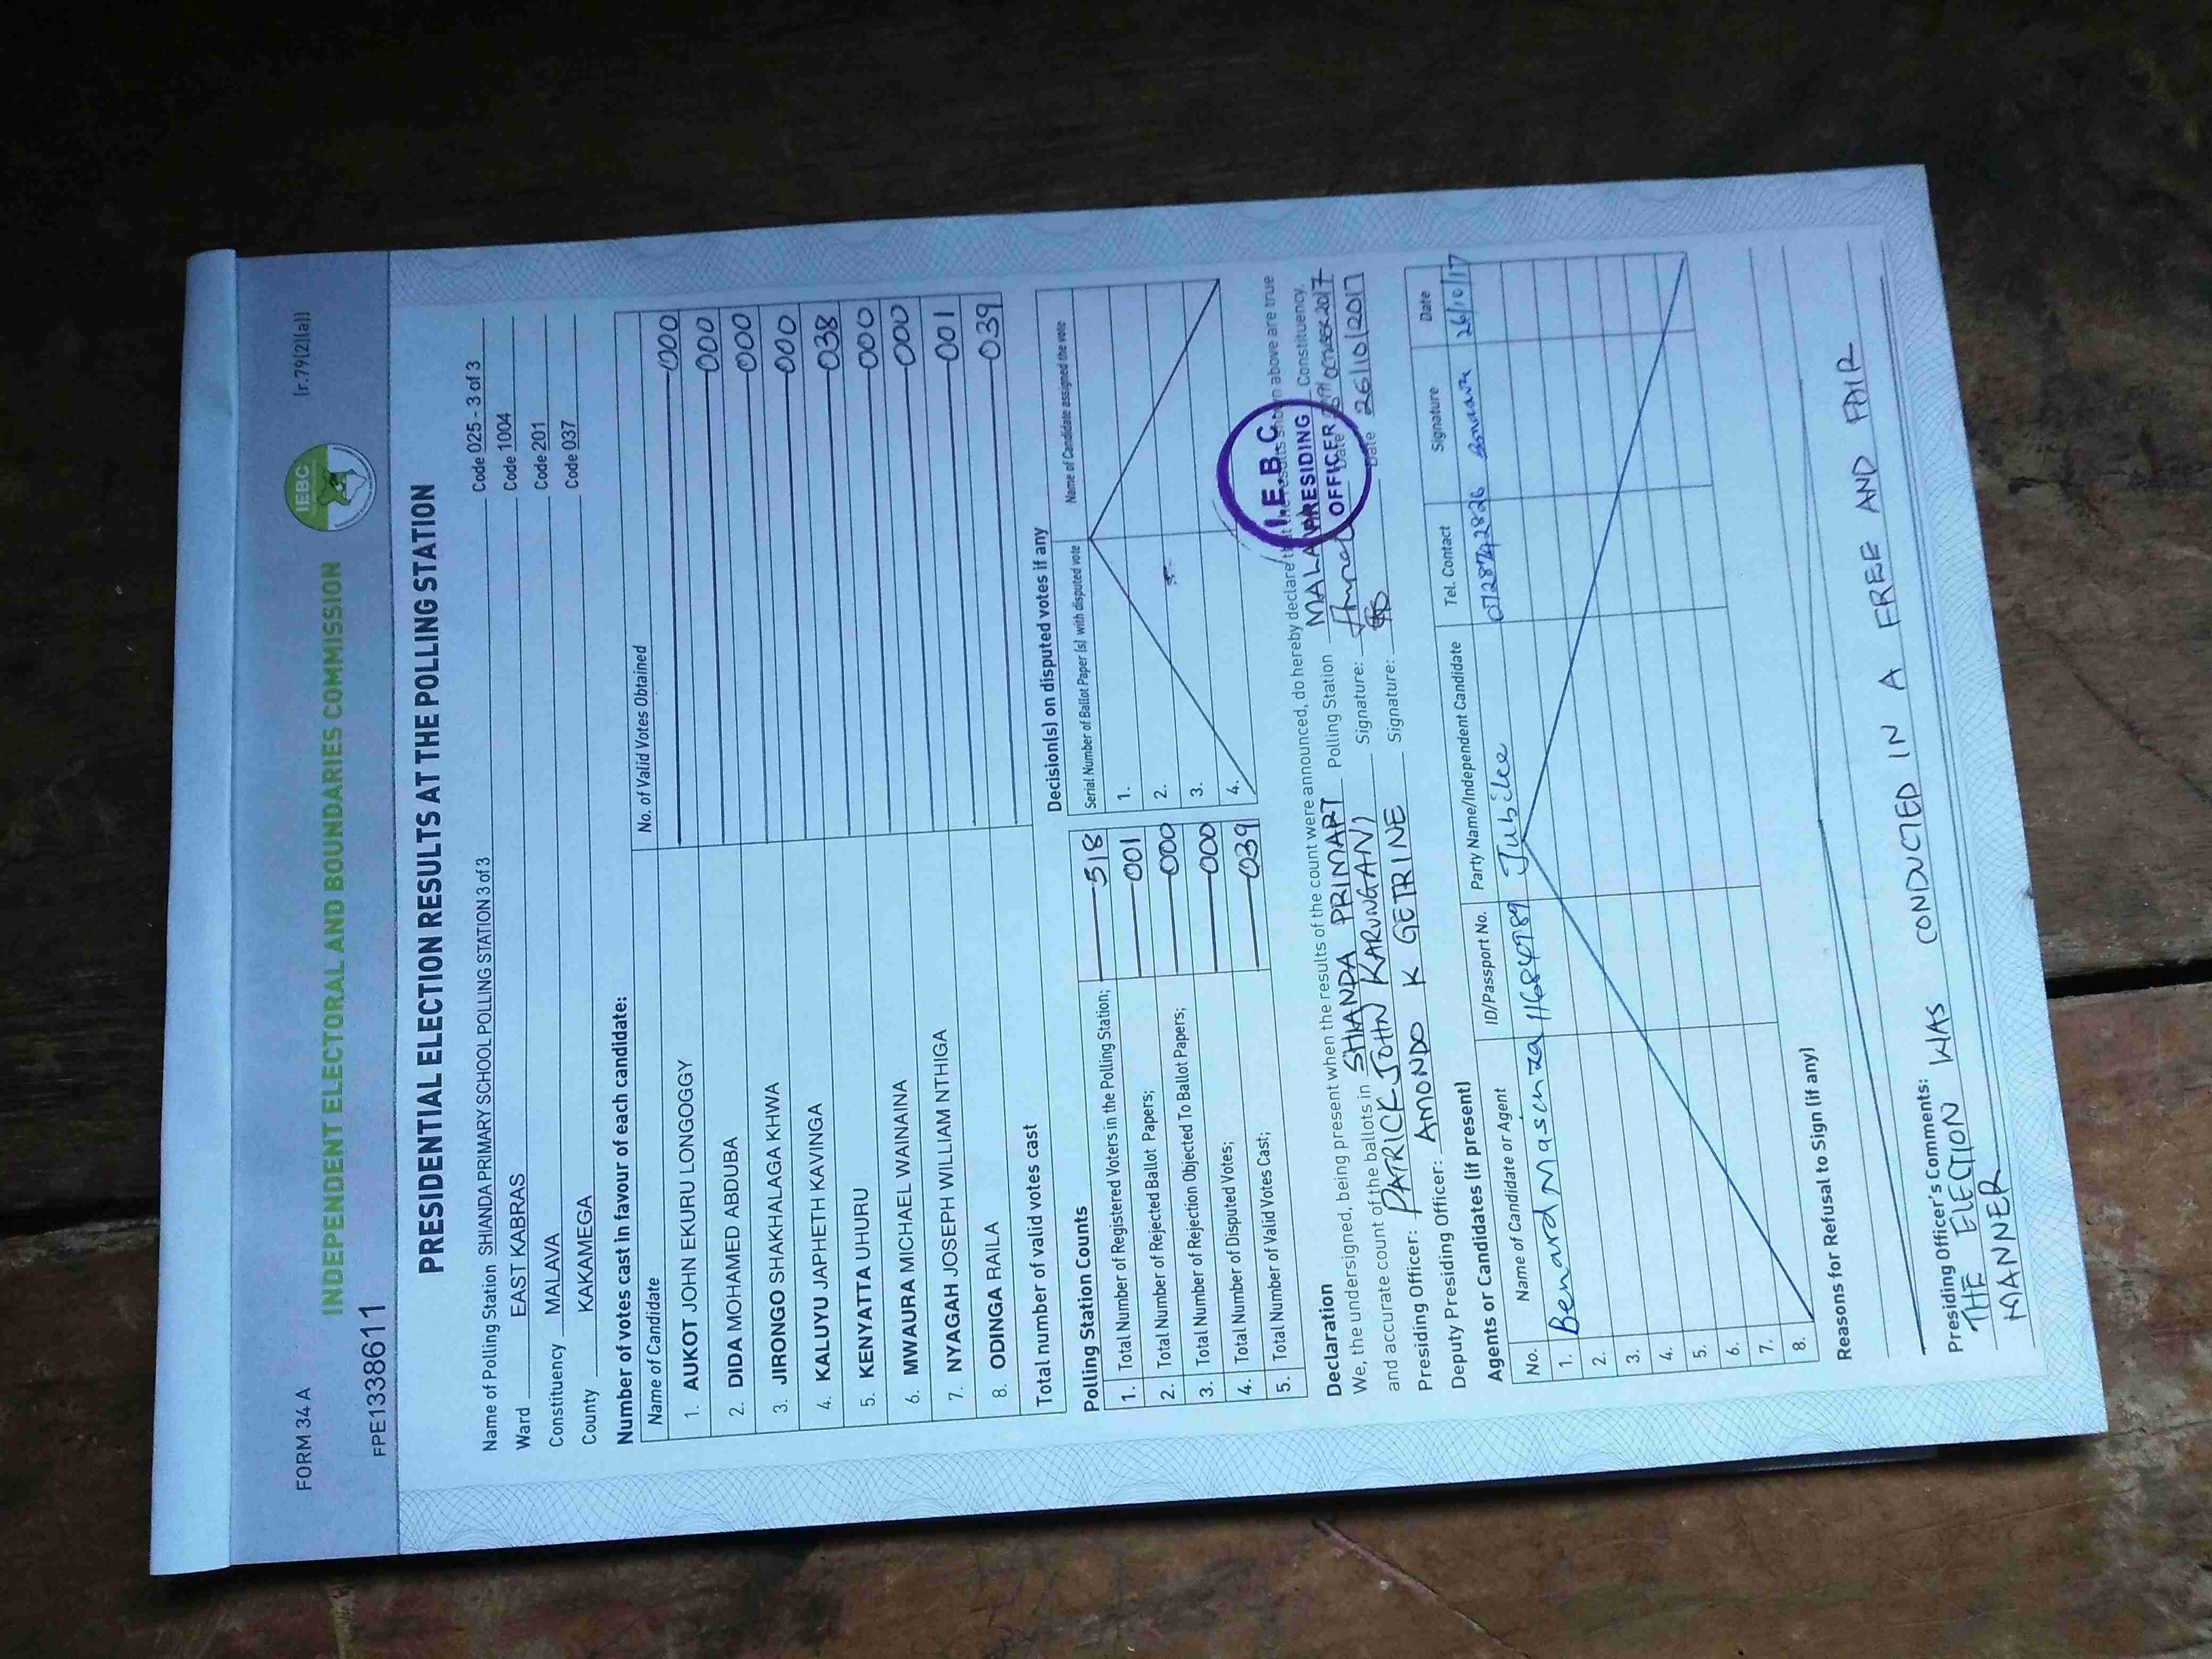 FORM 34 A
(r.79(2)(a))
IEBC
INDEPENDENT ELECTORAL AND BOUNDARIES COMMISSION
FPE1338611
PRESIDENTIAL ELECTION RESULTS AT THE POLLING STATION
Name of Polling Station SHIANDA PRIMARY SCHOOL POLLING STATION 3 of 3 Code 025 - 3 of 3
Ward EAST KABRAS Code 1004
Constituency MALAVA Code 201
County KAKAMEGA Code 037
Number of votes cast in favour of each candidate:
Name of Candidate No. of Valid Votes Obtained
1. AUKOT JOHN EKURU LONGOGGY 000
2. DIDA MOHAMED ABDUBA 000
3. JIRONGO SHAKHALAGA KHWA 000
4. KALUYU JAPHETH KAVINGA 000
5. KENYATTA UHURU 038
6. MWAURA MICHAEL WAINAINA 000
7. NYAGAH JOSEPH WILLIAM NTHIGA 000
8. ODINGA RAILA 001
Total number of valid votes cast 039
Polling Station Counts
1. Total Number of Registered Voters in the Polling Station; 518
2. Total Number of Rejected Ballot Papers; 001
3. Total Number of Rejection Objected To Ballot Papers; 000
4. Total Number of Disputed Votes; 000
5. Total Number of Valid Votes Cast; 039
Decision(s) on disputed votes if any
Serial Number of Ballot Paper (s) with disputed vote Name of Candidate assigned the vote
1.
2.
3.
4.
Declaration
We, the undersigned, being present when the results of the count were announced, do hereby declare that the results shown above are true
and accurate count of the ballots in SHIANDA PRIMARY Polling Station MALAVA Constituency.
Presiding Officer: PATRICK JOHN KARUNGANI Signature: Date 26TH OCTOBER 2017
Deputy Presiding Officer: AMONDO K GETRINE Signature: Date 26/10/2017
I.E.B.C.
PRESIDING
OFFICER
Agents or Candidates (if present)
No. Name of Candidate or Agent ID/Passport No. Party Name/Independent Candidate Tel. Contact Signature Date
1. Benard Masinza 11684789 Jubilee 0728742826 26/10/17
2.
3.
4.
5.
6.
7.
8.
Reasons for Refusal to Sign (if any)
Presiding Officer's Comments:
THE ELECTION WAS CONDUCTED IN A FREE AND FAIR
MANNER